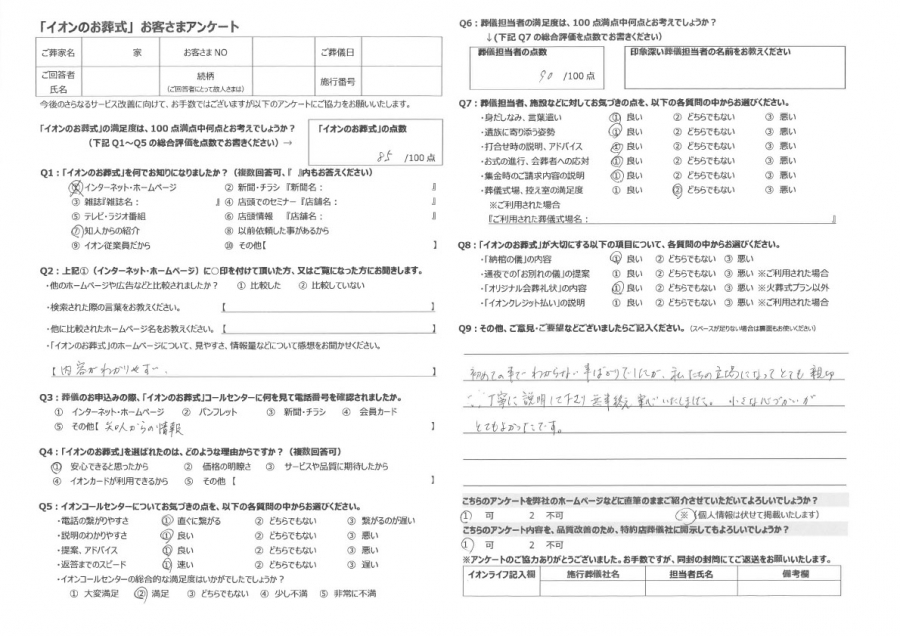 「イオンのお葬式」お客さまアンケート
ご葬家名 家 お客さまNO ご葬儀日
ご回答者氏名 続柄（ご回答者にとって故人さまは） 施行番号
今後のさらなるサービス改善に向けて、お手数ではございますが以下のアンケートにご協力をお願いいたします。
「イオンのお葬式」の満足度は、100点満点中何点とお考えでしょうか？
（下記Q1～Q5の総合評価を点数でお書きください）→
「イオンのお葬式」の点数
85 /100点
Q1：「イオンのお葬式」を何でお知りになりましたか？（複数回答可、『 』内もお答えください）
① インターネット・ホームページ ② 新聞・チラシ『新聞名： 』
③ 雑誌『雑誌名： 』 ④ 店頭でのセミナー『店舗名： 』
⑤ テレビ・ラジオ番組 ⑥ 店頭情報 『店舗名： 』
⑦ 知人からの紹介 ⑧ 以前依頼した事があるから
⑨ イオン従業員だから ⑩ その他【 】
Q2：上記①（インターネット・ホームページ）に○印を付けて頂いた方、又はご覧になった方にお聞きします。
・他のホームページや広告などと比較されましたか？ ① 比較した ② 比較していない
・検索された際の言葉をお教えください。 【 】
・他に比較されたホームページ名をお教えください。【 】
・「イオンのお葬式」のホームページについて、見やすさ、情報量などについて感想をお聞かせください。
【内容がわかりやすい. 】
Q3：葬儀のお申込みの際、「イオンのお葬式」コールセンターに何を見て電話番号を確認されましたか。
① インターネット・ホームページ ② パンフレット ③ 新聞・チラシ ④ 会員カード
⑤ その他【 知人からの情報 】
Q4：「イオンのお葬式」を選ばれたのは、どのような理由からですか？（複数回答可）
① 安心できると思ったから ② 価格の明瞭さ ③ サービスや品質に期待したから
④ イオンカードが利用できるから ⑤ その他【 】
Q5：イオンコールセンターについてお気づきの点を、以下の各質問の中からお選びください。
・電話の繋がりやすさ ① 直ぐに繋がる ② どちらでもない ③ 繋がるのが遅い
・説明のわかりやすさ ① 良い ② どちらでもない ③ 悪い
・提案、アドバイス ① 良い ② どちらでもない ③ 悪い
・返答までのスピード ① 速い ② どちらでもない ③ 遅い
・イオンコールセンターの総合的な満足度はいかがでしたでしょうか？
① 大変満足 ② 満足 ③ どちらでもない ④ 少し不満 ⑤ 非常に不満
Q6：葬儀担当者の満足度は、100点満点中何点とお考えでしょうか？
↓（下記Q7の総合評価を点数でお書きください）
葬儀担当者の点数 印象深い葬儀担当者の名前をお教えください
90 /100点
Q7：葬儀担当者、施設などに対してお気づきの点を、以下の各質問の中からお選びください。
・身だしなみ、言葉遣い ① 良い ② どちらでもない ③ 悪い
・遺族に寄り添う姿勢 ① 良い ② どちらでもない ③ 悪い
・打合せ時の説明、アドバイス ① 良い ② どちらでもない ③ 悪い
・お式の進行、会葬者への応対 ① 良い ② どちらでもない ③ 悪い
・集金時のご請求内容の説明 ① 良い ② どちらでもない ③ 悪い
・葬儀式場、控え室の満足度 ① 良い ② どちらでもない ③ 悪い
※ご利用された場合
『ご利用された葬儀式場名： 』
Q8：「イオンのお葬式」が大切にする以下の項目について、各質問の中からお選びください。
・「納棺の儀」の内容 ① 良い ② どちらでもない ③ 悪い
・通夜での「お別れの儀」の提案 ① 良い ② どちらでもない ③ 悪い ※ご利用された場合
・「オリジナル会葬礼状」の内容 ① 良い ② どちらでもない ③ 悪い ※火葬式プラン以外
・「イオンクレジット払い」の説明 ① 良い ② どちらでもない ③ 悪い ※ご利用された場合
Q9：その他、ご意見・ご要望などございましたらご記入ください。（スペースが足りない場合は裏面もお使いください）
初めての事でわからない事ばかりでしたが、私たちの立場になってとても親切
丁寧に説明して下さり無事終える事がいたしました。小さな心づかいが
とてもよかったです。
こちらのアンケートを弊社のホームページなどに直筆のままご紹介させていただいてよろしいでしょうか？
1 可 2 不可 ※（個人情報は伏せて掲載いたします）
こちらのアンケート内容を、品質改善のため、特約店葬儀社に開示してもよろしいでしょうか？
1 可 2 不可
※アンケートのご協力ありがとうございました。お手数ですが、同封の封筒にてご返送をお願いいたします。
イオンライフ記入欄 施行葬儀社名 担当者氏名 備考欄